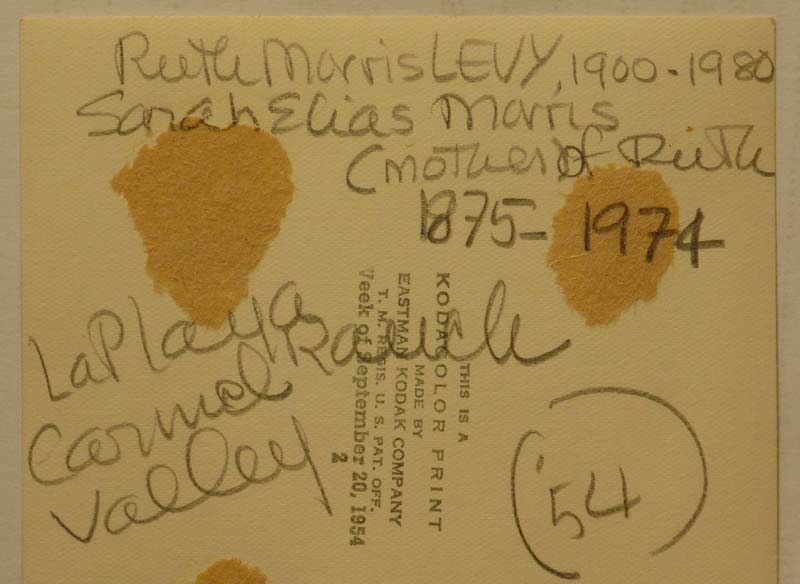 Ruth Morris LEVY, 1900-1980
Sarah Elias Morris
(mother of Ruth
1875-1974
LaPlaya Ranch
Carmel
Valley
THIS IS A
KODACOLOR PRINT
MADE BY
EASTMAN KODAK COMPANY
T. M. REGIS. U. S. PAT. OFF.
Week of September 20, 1954
2
'54